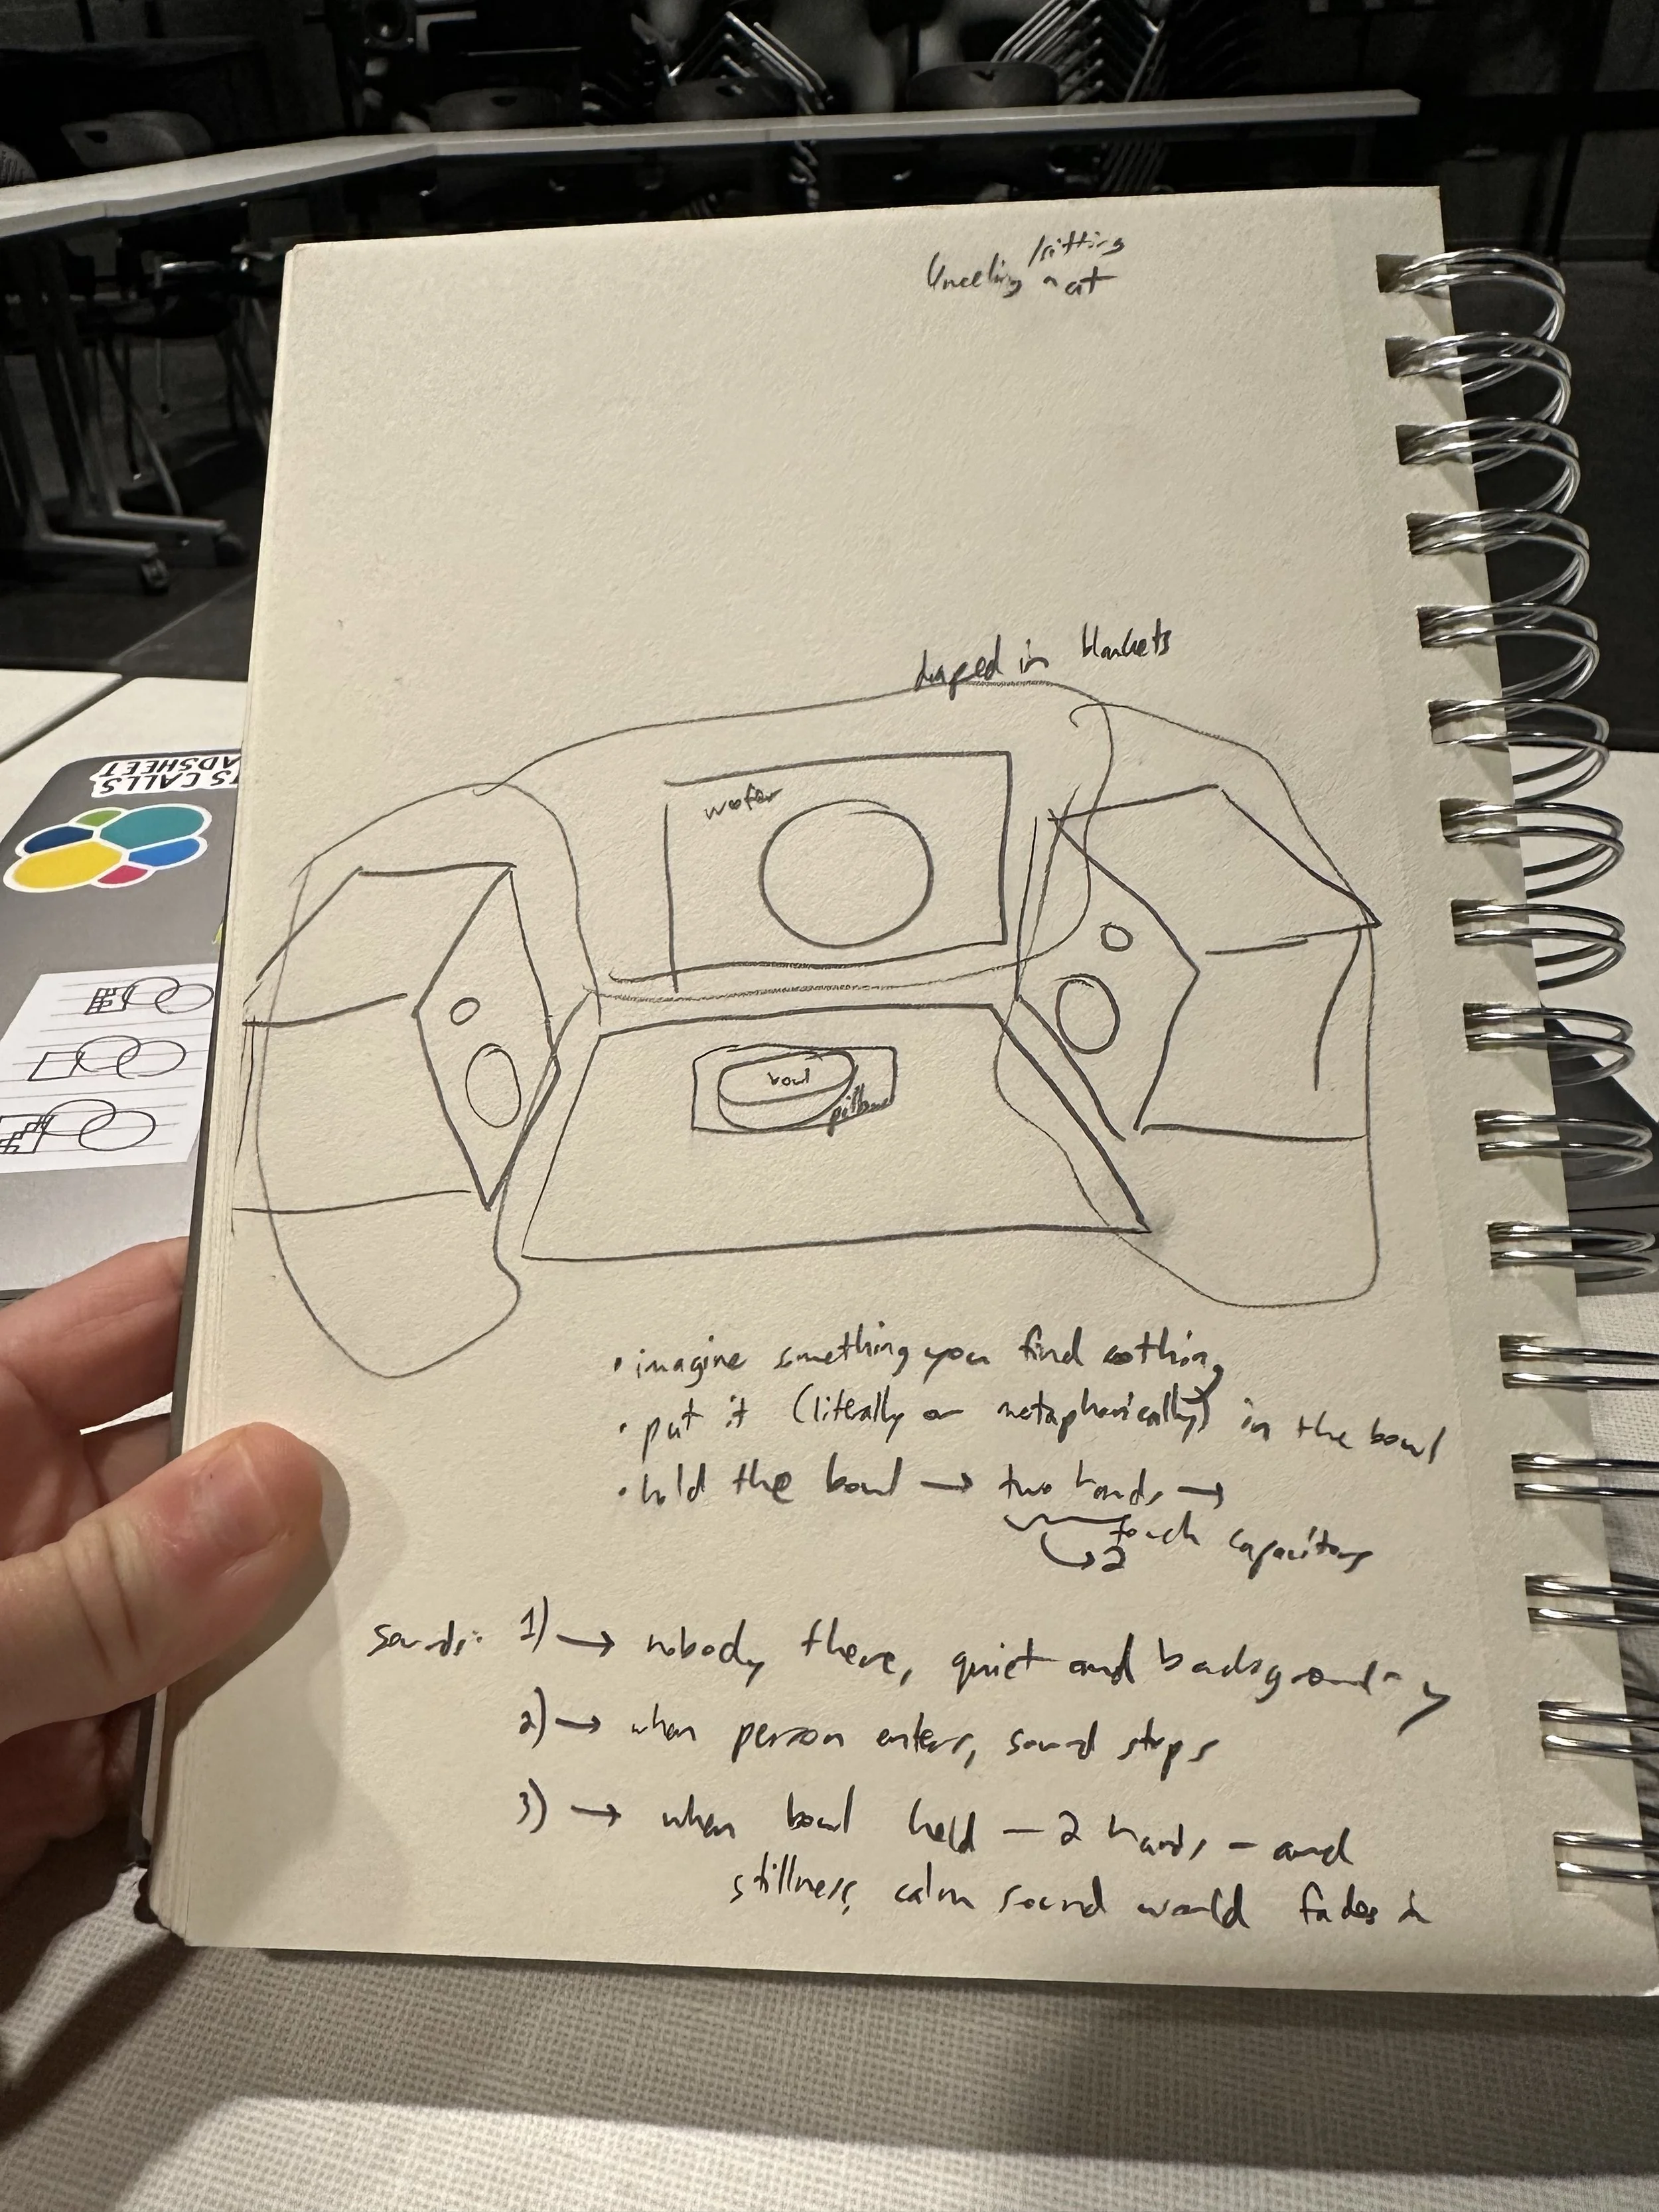 /sitting
kneeling mat
draped in blankets
woofer
bowl
pillow
• imagine something you find soothing
• put it (literally or metaphorically) in the bowl
• hold the bowl → two hands →
touch capacitors
→ 2
sounds: 1) → nobody there, quiet and background-y
2) → when person enters, sound stops
3) → when bowl held – 2 hands – and
stillness, calm sound world fades in
TS CALLS
ADSHEET